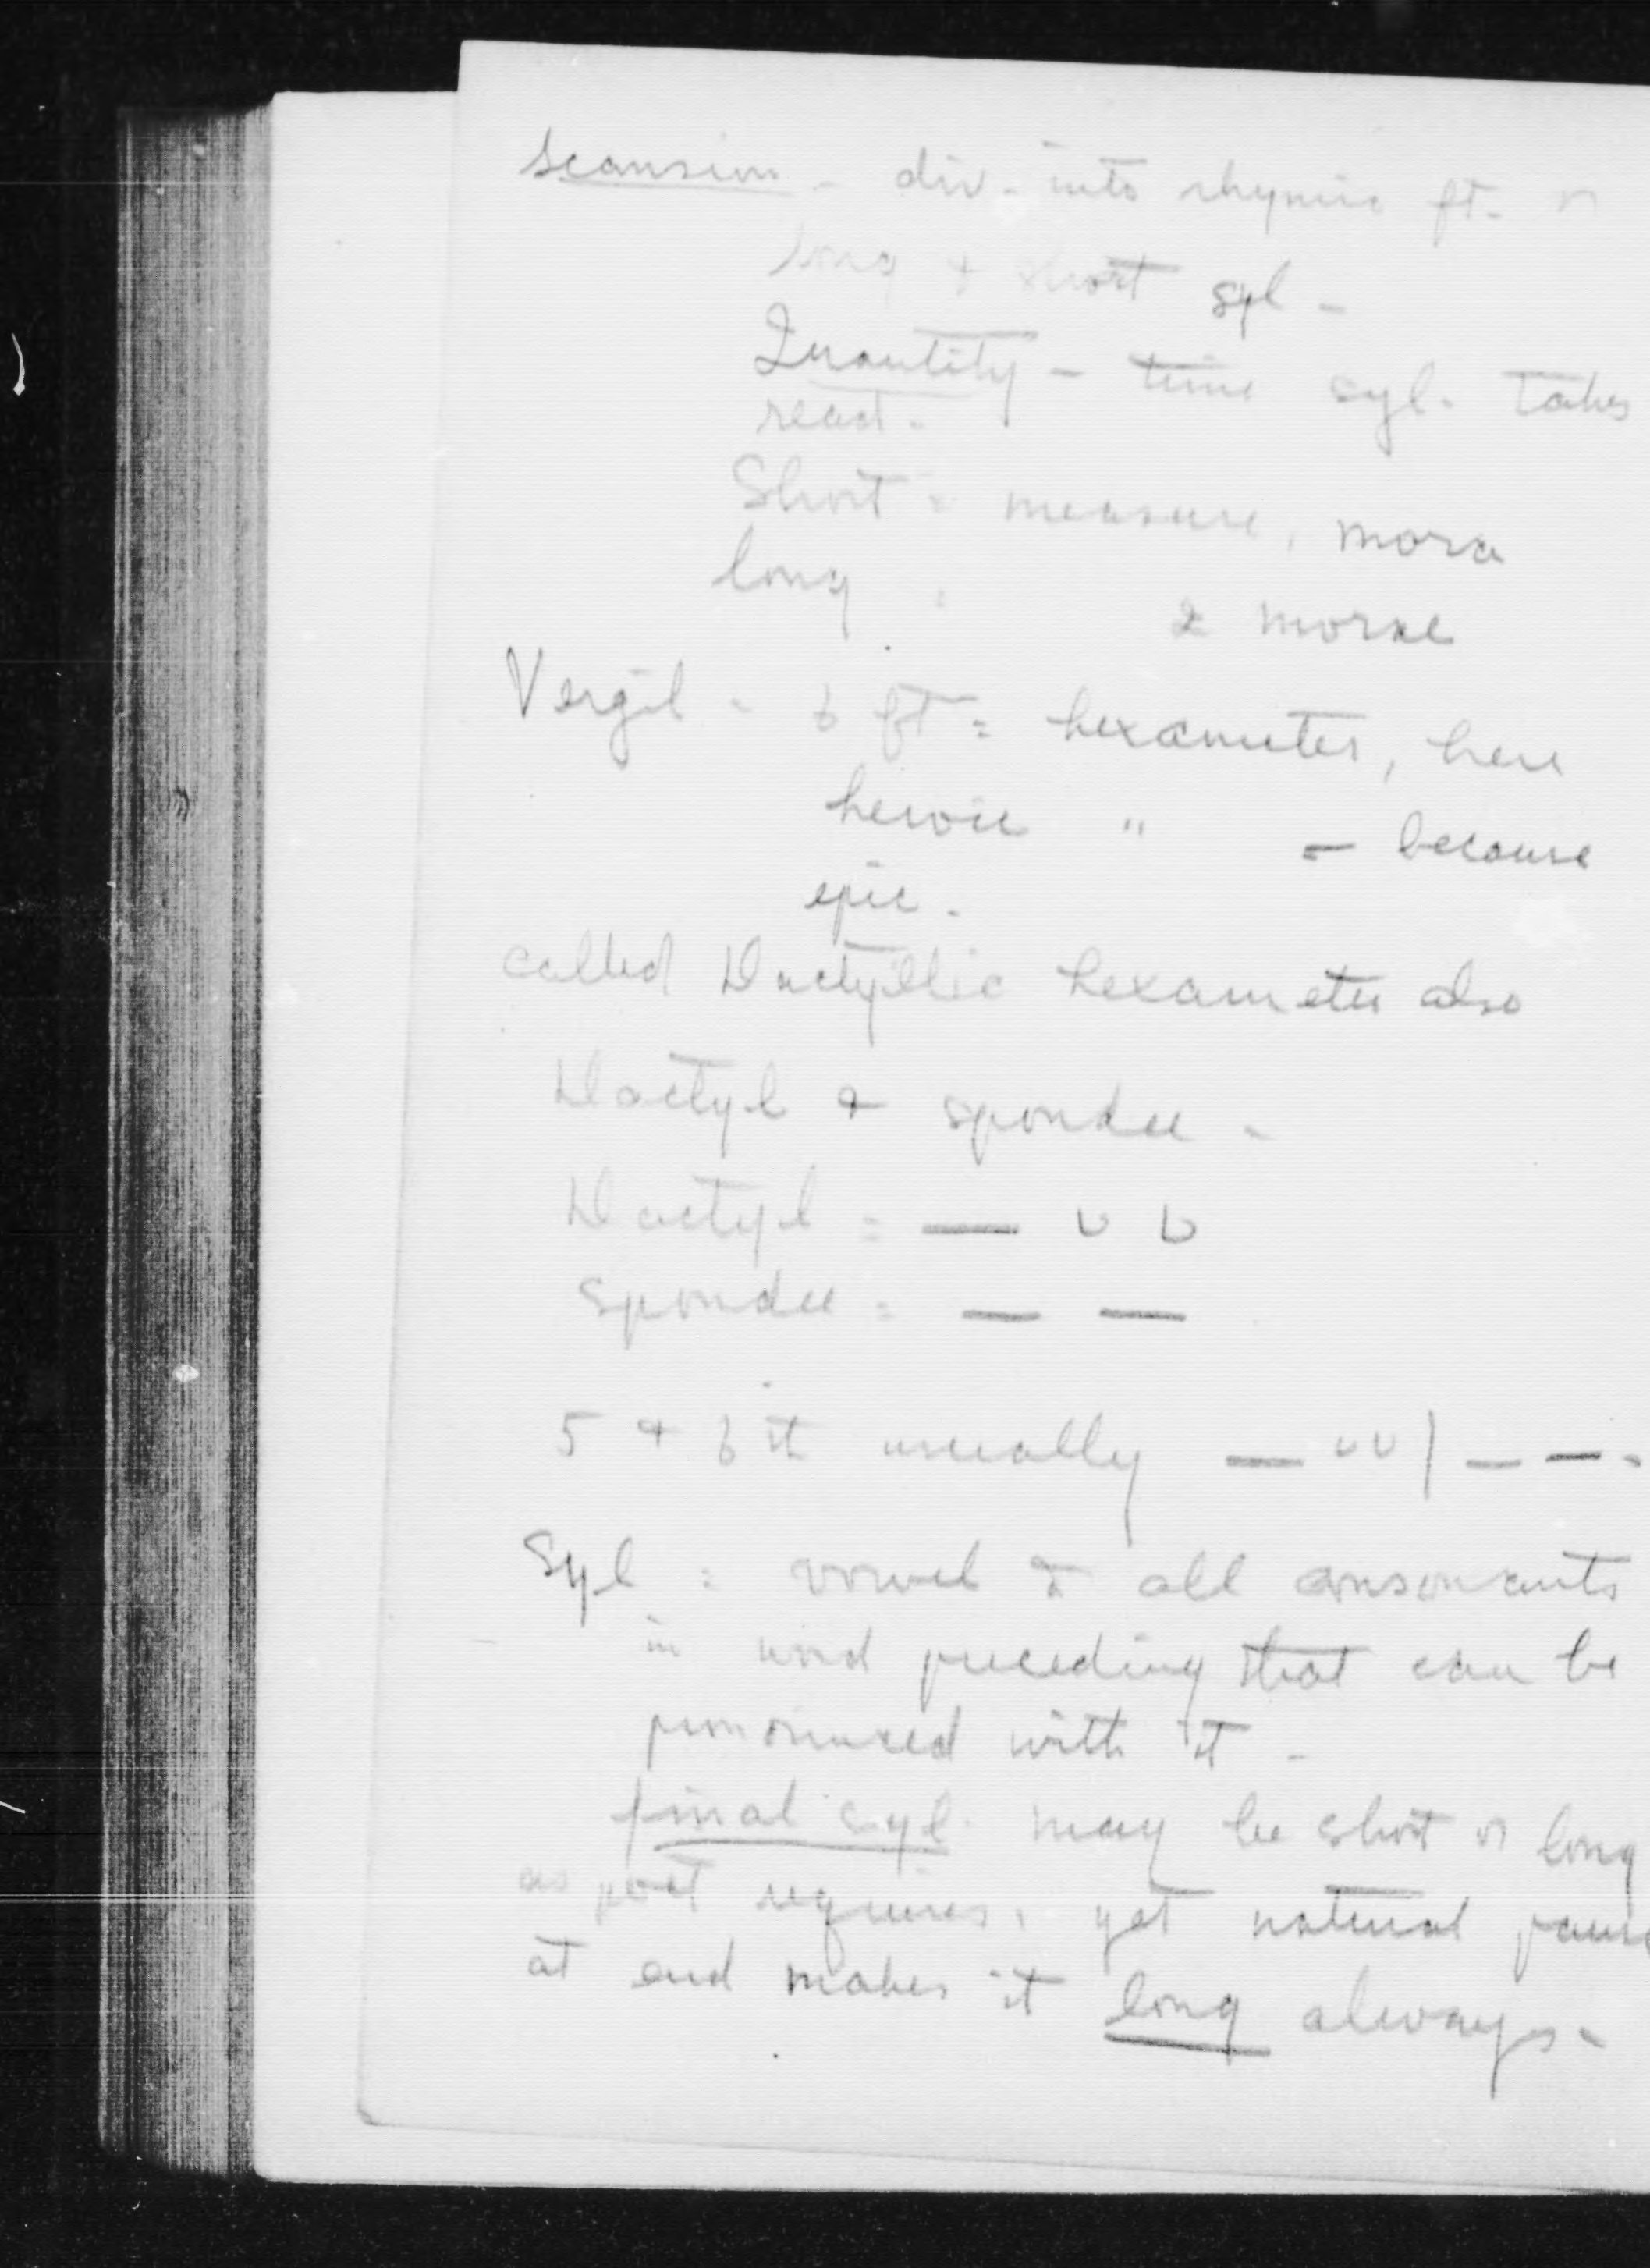 Scansion - div. into rhymic ft. or
long & short syl -
Quantity - time syl. takes
read.
Short = measure, mora
long = 2 morae
Vergil - 6 ft = hexameter, here
heroic " - because
epic.
called Dactyllic hexameter also
Dactyl & spondee -
Dactyl = — ᴗ ᴗ
Spondee = — —
5 & 6 ft usually — ᴗ ᴗ | — — -
Syl = vowel & all consonants
in word preceding that can be
pronounced with it -
final syl. may be short or long
as poet requires, yet natural pause
at end makes it long always -